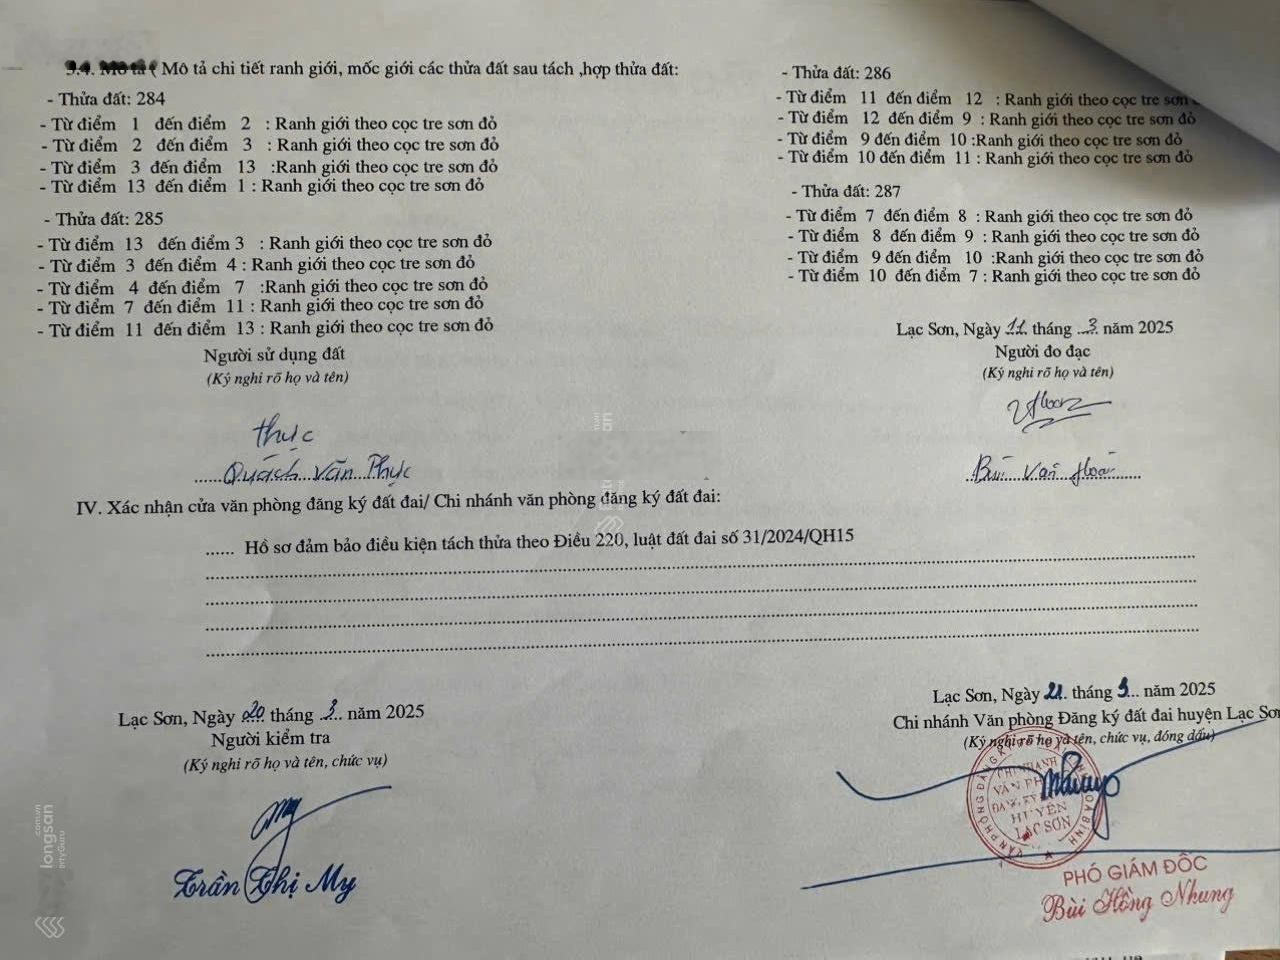 3.4. Mô tả ( Mô tả chi tiết ranh giới, mốc giới các thửa đất sau tách ,hợp thửa đất:
- Thửa đất: 284
- Từ điểm 1 đến điểm 2 : Ranh giới theo cọc tre sơn đỏ
- Từ điểm 2 đến điểm 3 : Ranh giới theo cọc tre sơn đỏ
- Từ điểm 3 đến điểm 13 :Ranh giới theo cọc tre sơn đỏ
- Từ điểm 13 đến điểm 1 : Ranh giới theo cọc tre sơn đỏ
- Thửa đất: 285
- Từ điểm 13 đến điểm 3 : Ranh giới theo cọc tre sơn đỏ
- Từ điểm 3 đến điểm 4 : Ranh giới theo cọc tre sơn đỏ
- Từ điểm 4 đến điểm 7 :Ranh giới theo cọc tre sơn đỏ
- Từ điểm 7 đến điểm 11 : Ranh giới theo cọc tre sơn đỏ
- Từ điểm 11 đến điểm 13 : Ranh giới theo cọc tre sơn đỏ
- Thửa đất: 286
- Từ điểm 11 đến điểm 12 : Ranh giới theo cọc tre sơn
- Từ điểm 12 đến điểm 9 : Ranh giới theo cọc tre sơn đỏ
- Từ điểm 9 đến điểm 10 :Ranh giới theo cọc tre sơn đỏ
- Từ điểm 10 đến điểm 11 : Ranh giới theo cọc tre sơn đỏ
- Thửa đất: 287
- Từ điểm 7 đến điểm 8 : Ranh giới theo cọc tre sơn đỏ
- Từ điểm 8 đến điểm 9 : Ranh giới theo cọc tre sơn đỏ
- Từ điểm 9 đến điểm 10 :Ranh giới theo cọc tre sơn đỏ
- Từ điểm 10 đến điểm 7 : Ranh giới theo cọc tre sơn đỏ
Người sử dụng đất
(Ký nghi rõ họ và tên)
thực
Quách Văn Thực
Lạc Sơn, Ngày 11 tháng 3 năm 2025
Người đo đạc
(Ký nghi rõ họ và tên)
Bùi Văn
IV. Xác nhận cửa văn phòng đăng ký đất đai/ Chi nhánh văn phòng đăng ký đất đai:
...... Hồ sơ đảm bảo điều kiện tách thửa theo Điều 220, luật đất đai số 31/2024/QH15
Lạc Sơn, Ngày 20 tháng 3 năm 2025
Người kiểm tra
(Ký nghi rõ họ và tên, chức vụ)
Trần Thị My
Lạc Sơn, Ngày 21 tháng 3 năm 2025
Chi nhánh Văn phòng Đăng ký đất đai huyện Lạc Sơn
(Ký nghi rõ họ và tên, chức vụ, đóng dấu)
CHI NHÁNH
VĂN PH
ĐĂNG KÝ
HUYỆN
LẠC SƠN
PHÓ GIÁM ĐỐC
Bùi Hồng Nhung
longsan